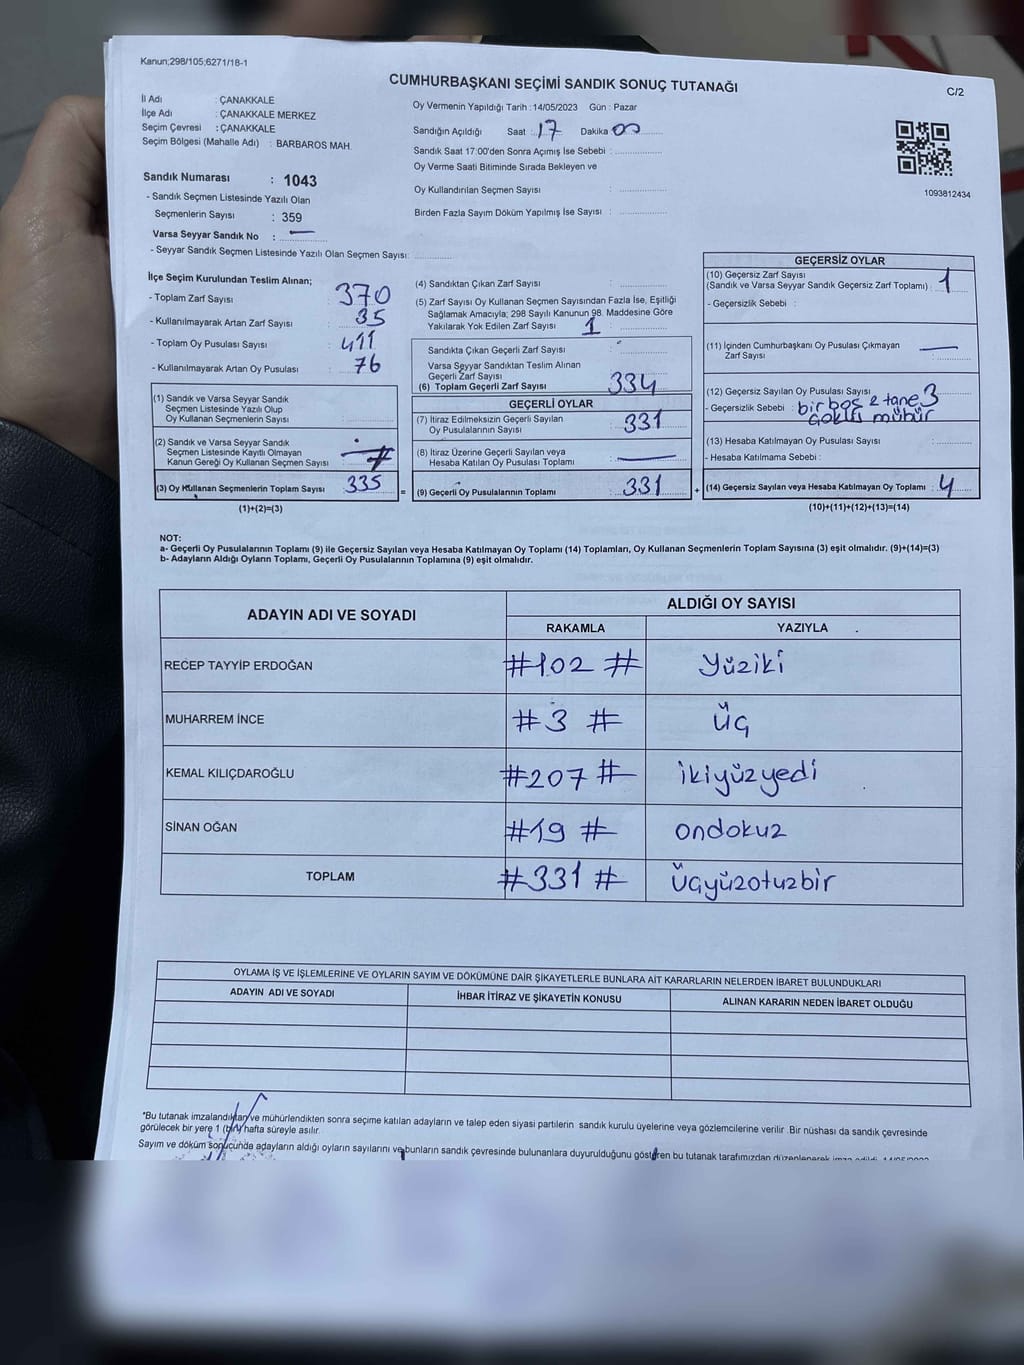 Kanun;298/105;6271/18-1
CUMHURBAŞKANI SEÇİMİ SANDIK SONUÇ TUTANAĞI
C/2
İl Adı : ÇANAKKALE
İlçe Adı : ÇANAKKALE MERKEZ
Seçim Çevresi : ÇANAKKALE
Seçim Bölgesi (Mahalle Adı) : BARBAROS MAH.
Sandık Numarası : 1043
- Sandık Seçmen Listesinde Yazılı Olan
Seçmenlerin Sayısı : 359
Varsa Seyyar Sandık No : —
- Seyyar Sandık Seçmen Listesinde Yazılı Olan Seçmen Sayısı:
Oy Vermenin Yapıldığı Tarih : 14/05/2023 Gün : Pazar
Sandığın Açıldığı Saat : 17 Dakika 00
Sandık Saat 17:00'den Sonra Açımış İse Sebebi :
Oy Verme Saati Bitiminde Sırada Bekleyen ve
Oy Kullandırılan Seçmen Sayısı :
Birden Fazla Sayım Döküm Yapılmış İse Sayısı :
1093812434
İlçe Seçim Kurulundan Teslim Alınan;
- Toplam Zarf Sayısı : 370
- Kullanılmayarak Artan Zarf Sayısı : 35
- Toplam Oy Pusulası Sayısı : 411
- Kullanılmayarak Artan Oy Pusulası : 76
(1) Sandık ve Varsa Seyyar Sandık
Seçmen Listesinde Yazılı Olup
Oy Kullanan Seçmenlerin Sayısı :
(2) Sandık ve Varsa Seyyar Sandık
Seçmen Listesinde Kayıtlı Olmayan
Kanun Gereği Oy Kullanan Seçmen Sayısı :
(3) Oy Kullanan Seçmenlerin Toplam Sayısı 335 =
(1)+(2)=(3)
(4) Sandıktan Çıkan Zarf Sayısı :
(5) Zarf Sayısı Oy Kullanan Seçmen Sayısından Fazla İse, Eşitliği
Sağlamak Amacıyla; 298 Sayılı Kanunun 98. Maddesine Göre
Yakılarak Yok Edilen Zarf Sayısı : 1
Sandıkta Çıkan Geçerli Zarf Sayısı :
Varsa Seyyar Sandıktan Teslim Alınan
Geçerli Zarf Sayısı :
(6) Toplam Geçerli Zarf Sayısı 334
GEÇERLİ OYLAR
(7) İtiraz Edilmeksizin Geçerli Sayılan
Oy Pusulalarının Sayısı : 331
(8) İtiraz Üzerine Geçerli Sayılan veya
Hesaba Katılan Oy Pusulası Toplamı : —
(9) Geçerli Oy Pusulalarının Toplamı : 331 +
GEÇERSİZ OYLAR
(10) Geçersiz Zarf Sayısı
(Sandık ve Varsa Seyyar Sandık Geçersiz Zarf Toplamı) : 1
- Geçersizlik Sebebi :
(11) İçinden Cumhurbaşkanı Oy Pusulası Çıkmayan
Zarf Sayısı : —
(12) Geçersiz Sayılan Oy Pusulası Sayısı : 3
- Geçersizlik Sebebi : bir boş 2 tane
mühür
(13) Hesaba Katılmayan Oy Pusulası Sayısı :
- Hesaba Katılmama Sebebi :
(14) Geçersiz Sayılan veya Hesaba Katılmayan Oy Toplamı : 4
(10)+(11)+(12)+(13)=(14)
NOT:
a- Geçerli Oy Pusulalarının Toplamı (9) ile Geçersiz Sayılan veya Hesaba Katılmayan Oy Toplamı (14) Toplamları, Oy Kullanan Seçmenlerin Toplam Sayısına (3) eşit olmalıdır. (9)+(14)=(3)
b- Adayların Aldığı Oyların Toplamı, Geçerli Oy Pusulalarının Toplamına (9) eşit olmalıdır.
ADAYIN ADI VE SOYADI ALDIĞI OY SAYISI
RAKAMLA YAZIYLA
RECEP TAYYİP ERDOĞAN #102# Yüziki
MUHARREM İNCE #3# Üç
KEMAL KILIÇDAROĞLU #207# ikiyüzyedi
SİNAN OĞAN #19# ondokuz
TOPLAM #331# Üçyüzotuzbir
OYLAMA İŞ VE İŞLEMLERİNE VE OYLARIN SAYIM VE DÖKÜMÜNE DAİR ŞİKAYETLERLE BUNLARA AİT KARARLARIN NELERDEN İBARET BULUNDUKLARI
ADAYIN ADI VE SOYADI İHBAR İTİRAZ VE ŞİKAYETİN KONUSU ALINAN KARARIN NEDEN İBARET OLDUĞU
*Bu tutanak imzalandıktan ve mühürlendikten sonra seçime katılan adayların ve talep eden siyasi partilerin sandık kurulu üyelerine veya gözlemcilerine verilir. Bir nüshası da sandık çevresinde
görülecek bir yere 1 (bir) hafta süreyle asılır.
Sayım ve döküm sonucunda adayların aldığı oyların sayılarını ve bunların sandık çevresinde bulunanlara duyurulduğunu gösteren bu tutanak tarafımızdan düzenlenerek imza edildi. 14/05/2023